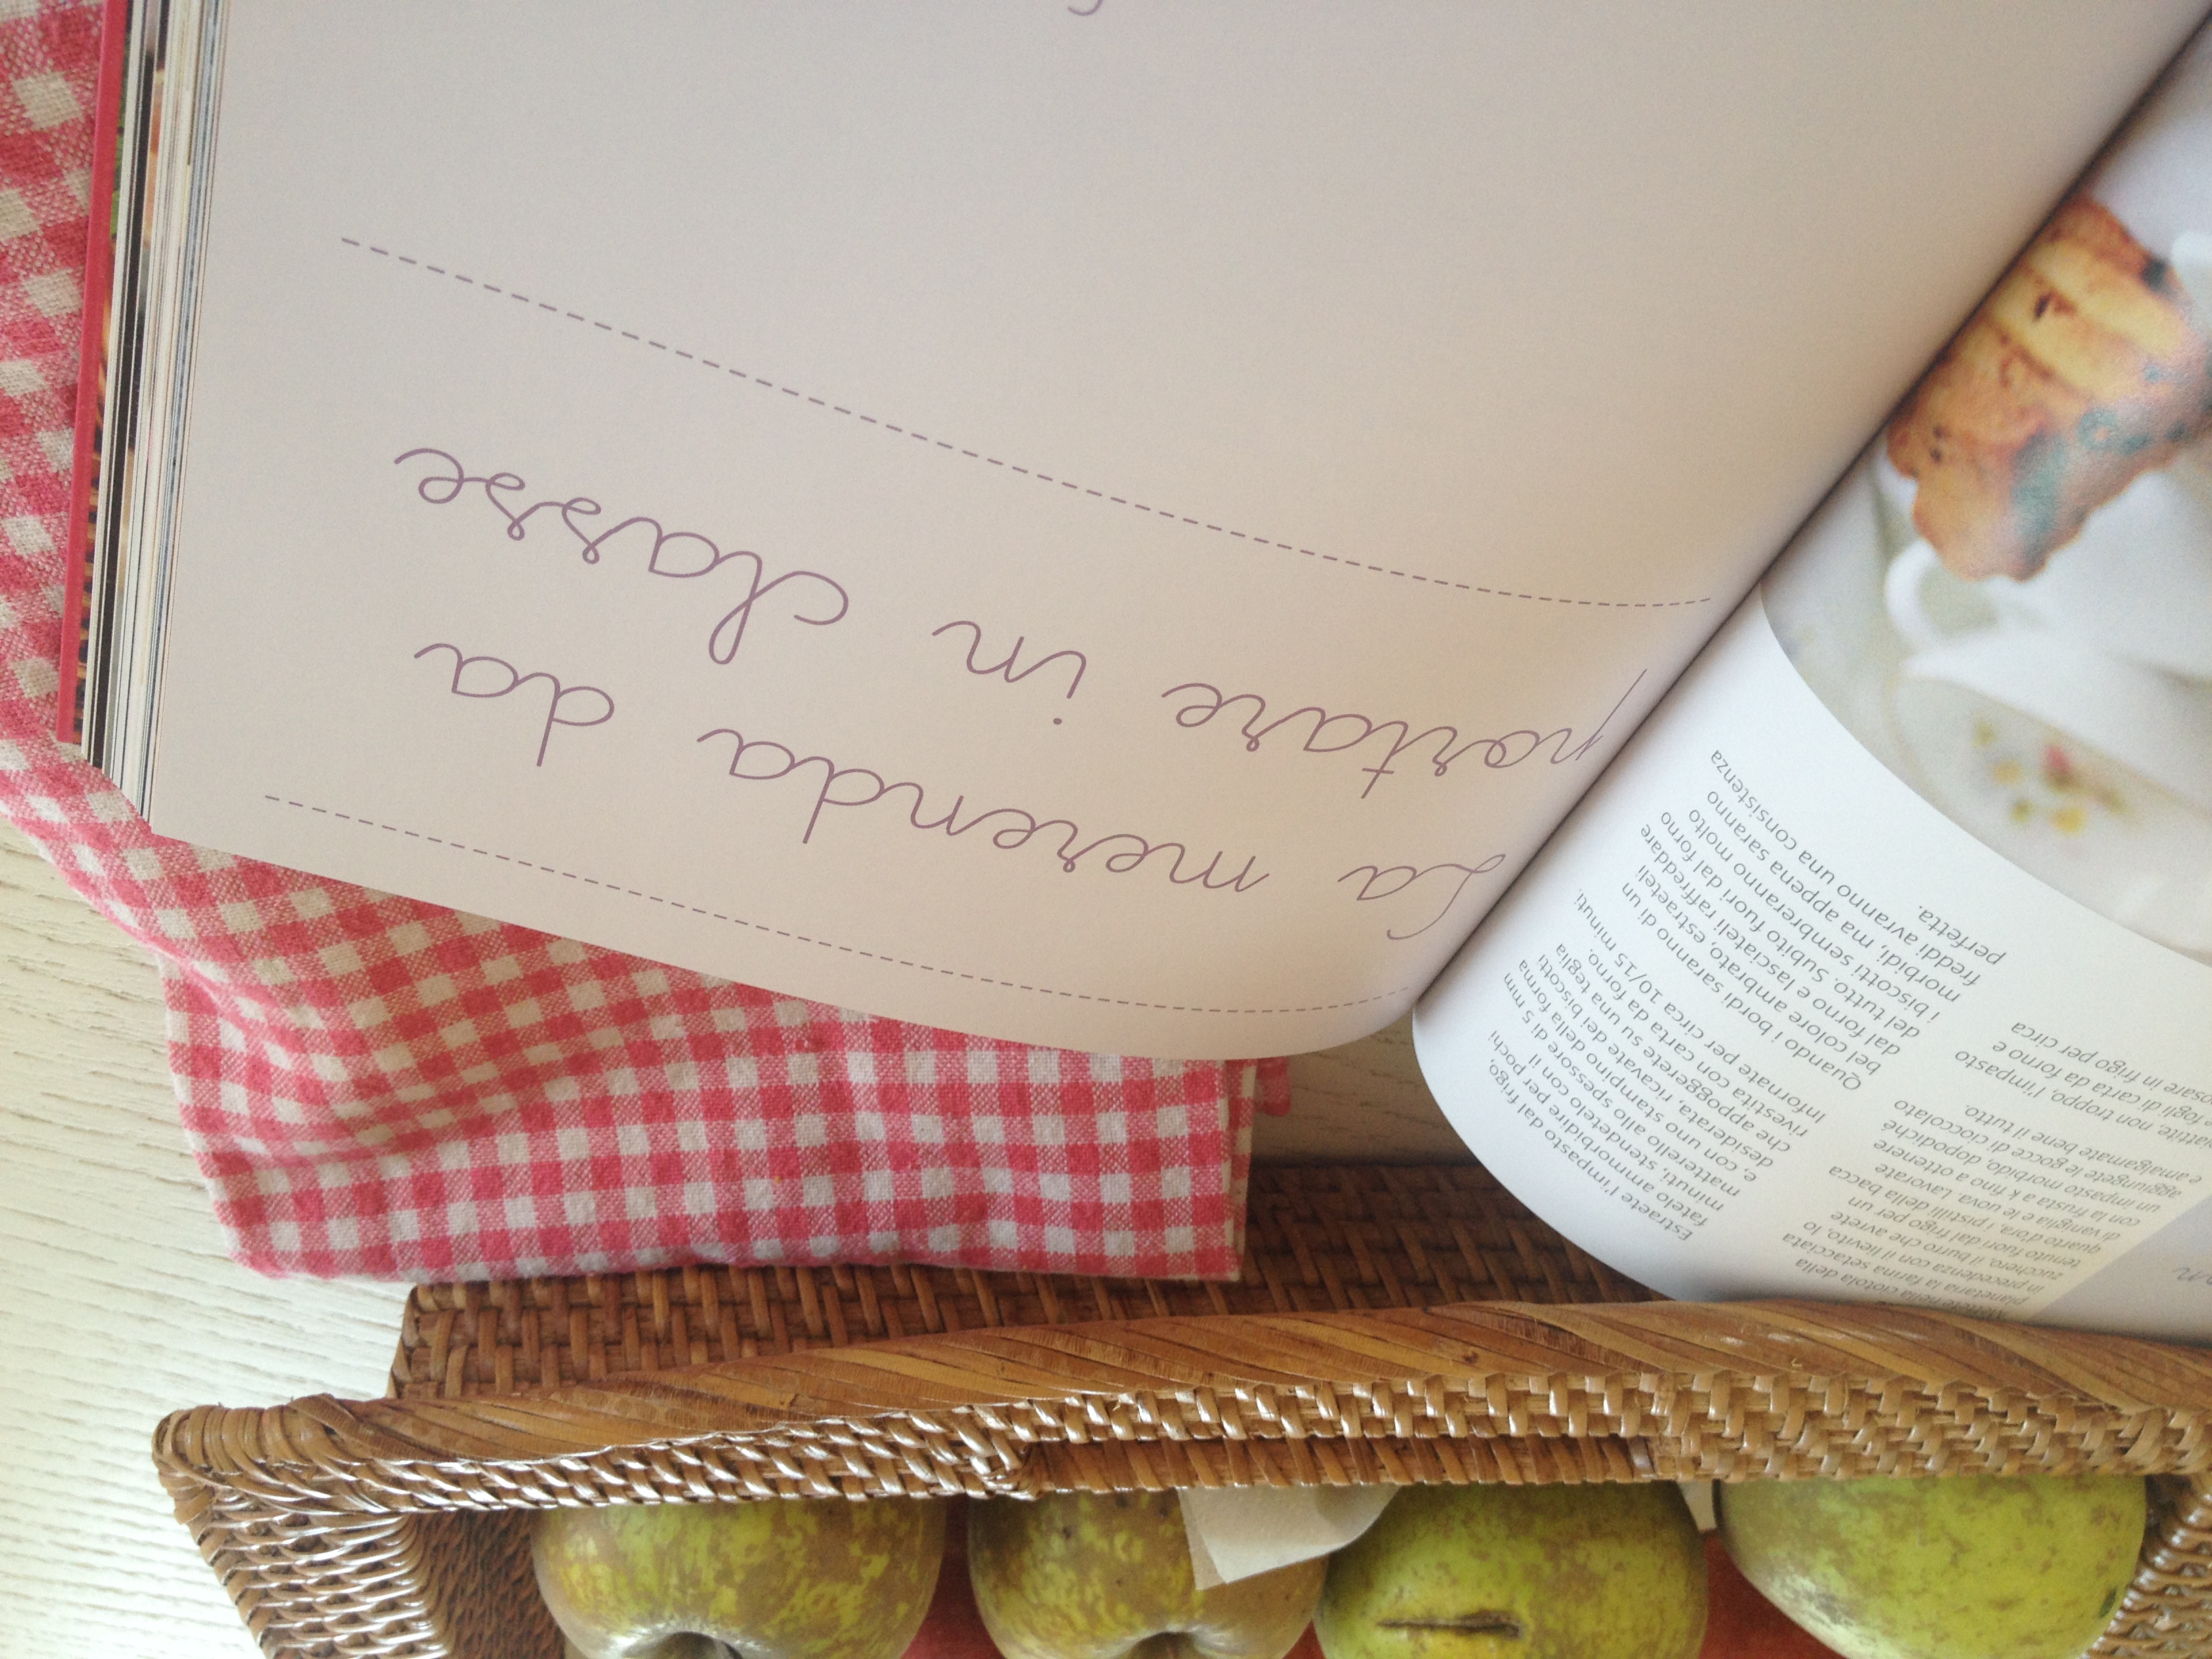 La merenda da
portare in classe
Mettete nella ciotola della
planetaria la farina setacciata
in precedenza con il lievito, lo
zucchero, il burro che avrete
tenuto fuori dal frigo per un
quarto d'ora, i pistilli della bacca
di vaniglia e le uova. Lavorate
con la frusta a k fino a ottenere
un impasto morbido, dopodiché
aggiungete le gocce di cioccolato
e amalgamate bene il tutto.
non troppo, l'impasto
fogli di carta da forno e
in frigo per circa
Estraete l'impasto dal frigo,
fatelo ammorbidire per pochi
minuti, stendetelo con il
matterello allo spessore di 5 mm
e, con uno stampino della forma
desiderata, ricavate dei biscotti
che appoggerete su una teglia
rivestita con carta da forno.
Infornate per circa 10/15 minuti.
Quando i bordi saranno di un
bel colore ambrato, estraeteli
dal forno e lasciateli raffreddare
del tutto. Subito fuori dal forno
i biscotti sembreranno molto
morbidi, ma appena saranno
freddi avranno una consistenza
perfetta.